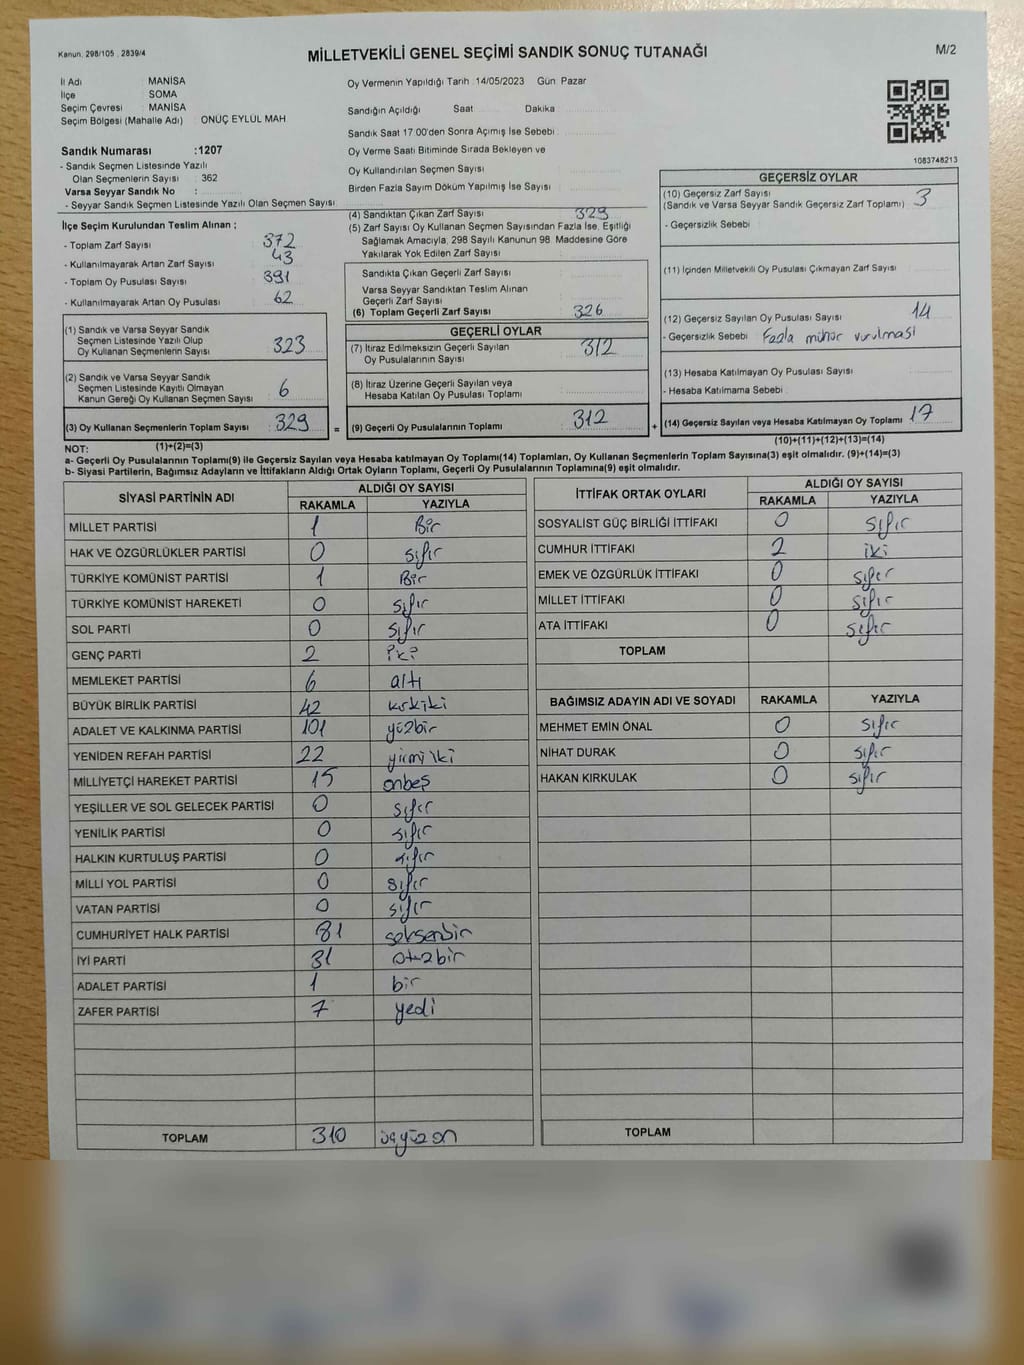 Kanun: 298/105 . 2839/4
MİLLETVEKİLİ GENEL SEÇİMİ SANDIK SONUÇ TUTANAĞI
M/2
İl Adı MANİSA
İlçe SOMA
Seçim Çevresi MANİSA
Seçim Bölgesi (Mahalle Adı) ONÜÇ EYLÜL MAH
Oy Vermenin Yapıldığı Tarih 14/05/2023 Gün Pazar
Sandığın Açıldığı Saat Dakika
Sandık Saat 17:00'den Sonra Açımış İse Sebebi
Oy Verme Saati Bitiminde Sırada Bekleyen ve
Oy Kullandırılan Seçmen Sayısı
Birden Fazla Sayım Döküm Yapılmış İse Sayısı
1083748213
Sandık Numarası :1207
- Sandık Seçmen Listesinde Yazılı
Olan Seçmenlerin Sayısı : 362
Varsa Seyyar Sandık No :
- Seyyar Sandık Seçmen Listesinde Yazılı Olan Seçmen Sayısı
İlçe Seçim Kurulundan Teslim Alınan ;
- Toplam Zarf Sayısı 372
- Kullanılmayarak Artan Zarf Sayısı 43
- Toplam Oy Pusulası Sayısı 391
- Kullanılmayarak Artan Oy Pusulası 62
(1) Sandık ve Varsa Seyyar Sandık
Seçmen Listesinde Yazılı Olup
Oy Kullanan Seçmenlerin Sayısı 323
(2) Sandık ve Varsa Seyyar Sandık
Seçmen Listesinde Kayıtlı Olmayan
Kanun Gereği Oy Kullanan Seçmen Sayısı 6
(3) Oy Kullanan Seçmenlerin Toplam Sayısı 329 =
(1)+(2)=(3)
(4) Sandıktan Çıkan Zarf Sayısı 329
(5) Zarf Sayısı Oy Kullanan Seçmen Sayısından Fazla İse, Eşitliği
Sağlamak Amacıyla, 298 Sayılı Kanunun 98. Maddesine Göre
Yakılarak Yok Edilen Zarf Sayısı
Sandıkta Çıkan Geçerli Zarf Sayısı
Varsa Seyyar Sandıktan Teslim Alınan
Geçerli Zarf Sayısı
(6) Toplam Geçerli Zarf Sayısı 326
GEÇERLİ OYLAR
(7) İtiraz Edilmeksizin Geçerli Sayılan
Oy Pusulalarının Sayısı 312
(8) İtiraz Üzerine Geçerli Sayılan veya
Hesaba Katılan Oy Pusulası Toplamı
(9) Geçerli Oy Pusulalarının Toplamı 312 +
GEÇERSİZ OYLAR
(10) Geçersiz Zarf Sayısı 3
(Sandık ve Varsa Seyyar Sandık Geçersiz Zarf Toplamı)
- Geçersizlik Sebebi
(11) İçinden Milletvekili Oy Pusulası Çıkmayan Zarf Sayısı
(12) Geçersiz Sayılan Oy Pusulası Sayısı 14
- Geçersizlik Sebebi Fazla mühür vurulması
(13) Hesaba Katılmayan Oy Pusulası Sayısı
- Hesaba Katılmama Sebebi
(14) Geçersiz Sayılan veya Hesaba Katılmayan Oy Toplamı 17
(10)+(11)+(12)+(13)=(14)
NOT:
a- Geçerli Oy Pusulalarının Toplamı(9) ile Geçersiz Sayılan veya Hesaba katılmayan Oy Toplamı(14) Toplamları, Oy Kullanan Seçmenlerin Toplam Sayısına(3) eşit olmalıdır. (9)+(14)=(3)
b- Siyasi Partilerin, Bağımsız Adayların ve İttifakların Aldığı Ortak Oyların Toplamı, Geçerli Oy Pusulalarının Toplamına(9) eşit olmalıdır.
SİYASİ PARTİNİN ADI ALDIĞI OY SAYISI
RAKAMLA YAZIYLA
MİLLET PARTİSİ 1 Bir
HAK VE ÖZGÜRLÜKLER PARTİSİ 0 sıfır
TÜRKİYE KOMÜNİST PARTİSİ 1 Bir
TÜRKİYE KOMÜNİST HAREKETİ 0 sıfır
SOL PARTİ 0 sıfır
GENÇ PARTİ 2 iki
MEMLEKET PARTİSİ 6 altı
BÜYÜK BİRLİK PARTİSİ 42 kırkiki
ADALET VE KALKINMA PARTİSİ 101 yüzbir
YENİDEN REFAH PARTİSİ 22 yirmiiki
MİLLİYETÇİ HAREKET PARTİSİ 15 onbeş
YEŞİLLER VE SOL GELECEK PARTİSİ 0 sıfır
YENİLİK PARTİSİ 0 sıfır
HALKIN KURTULUŞ PARTİSİ 0 sıfır
MİLLİ YOL PARTİSİ 0 sıfır
VATAN PARTİSİ 0 sıfır
CUMHURİYET HALK PARTİSİ 81 seksenbir
İYİ PARTİ 31 otuzbir
ADALET PARTİSİ 1 bir
ZAFER PARTİSİ 7 yedi
TOPLAM 310 üçyüzon
İTTİFAK ORTAK OYLARI ALDIĞI OY SAYISI
RAKAMLA YAZIYLA
SOSYALİST GÜÇ BİRLİĞİ İTTİFAKI 0 sıfır
CUMHUR İTTİFAKI 2 iki
EMEK VE ÖZGÜRLÜK İTTİFAKI 0 sıfır
MİLLET İTTİFAKI 0 sıfır
ATA İTTİFAKI 0 sıfır
TOPLAM
BAĞIMSIZ ADAYIN ADI VE SOYADI RAKAMLA YAZIYLA
MEHMET EMİN ÖNAL 0 sıfır
NİHAT DURAK 0 sıfır
HAKAN KIRKULAK 0 sıfır
TOPLAM